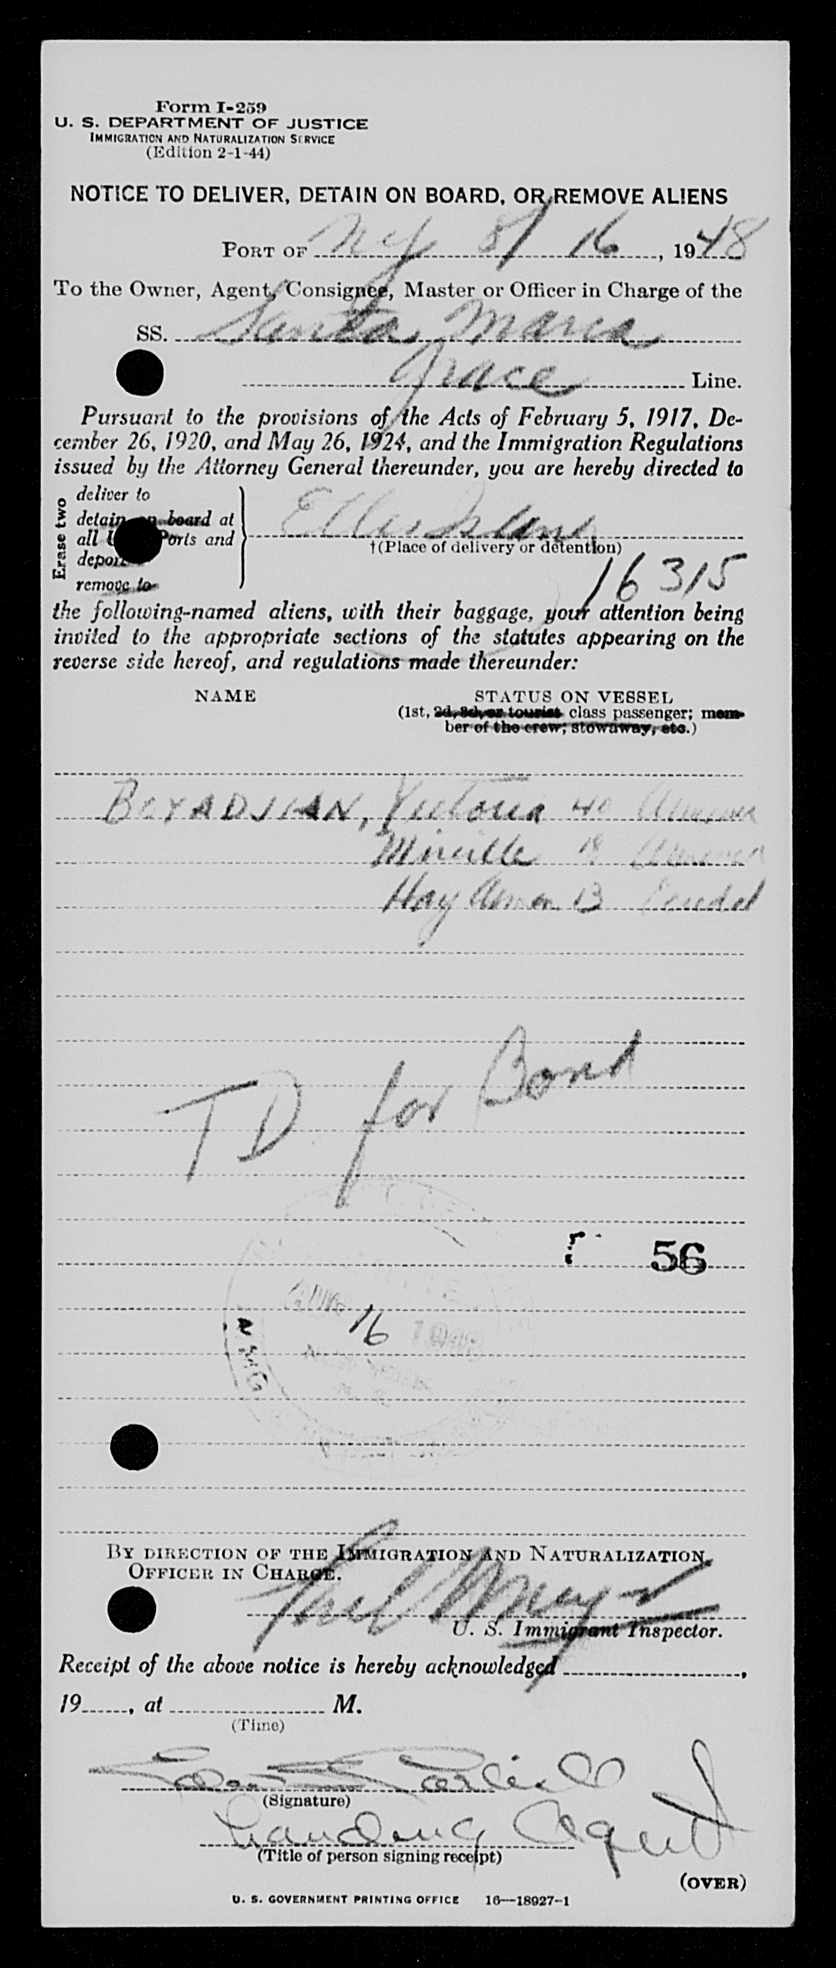 Form I-259
U. S. DEPARTMENT OF JUSTICE
IMMIGRATION AND NATURALIZATION SERVICE
(Edition 2-1-44)
NOTICE TO DELIVER, DETAIN ON BOARD, OR REMOVE ALIENS
PORT OF NY 8/16, 1948
To the Owner, Agent, Consignee, Master or Officer in Charge of the
SS. Santa Maria
Grace Line.
Pursuant to the provisions of the Acts of February 5, 1917, De-
cember 26, 1920, and May 26, 1924, and the Immigration Regulations
issued by the Attorney General thereunder, you are hereby directed to
Erase two
deliver to
detain on board at
all Ports and
deport
remove to
Ellis Island
†(Place of delivery or detention)
16315
the following-named aliens, with their baggage, your attention being
invited to the appropriate sections of the statutes appearing on the
reverse side hereof, and regulations made thereunder:
NAME STATUS ON VESSEL
(1st, 2d, 3d, or tourist class passenger; mem-
ber of the crew; stowaway, etc.)
BOYADJIAN, Victoria 40
Mireille 18
Hay 13
TD for Bond
56
16
BY DIRECTION OF THE IMMIGRATION AND NATURALIZATION
OFFICER IN CHARGE.
U. S. Immigrant Inspector.
Receipt of the above notice is hereby acknowledged ,
19 , at M.
(Time)
(Signature)
Landing Agent
(Title of person signing receipt)
(OVER)
U. S. GOVERNMENT PRINTING OFFICE 16—18927-1